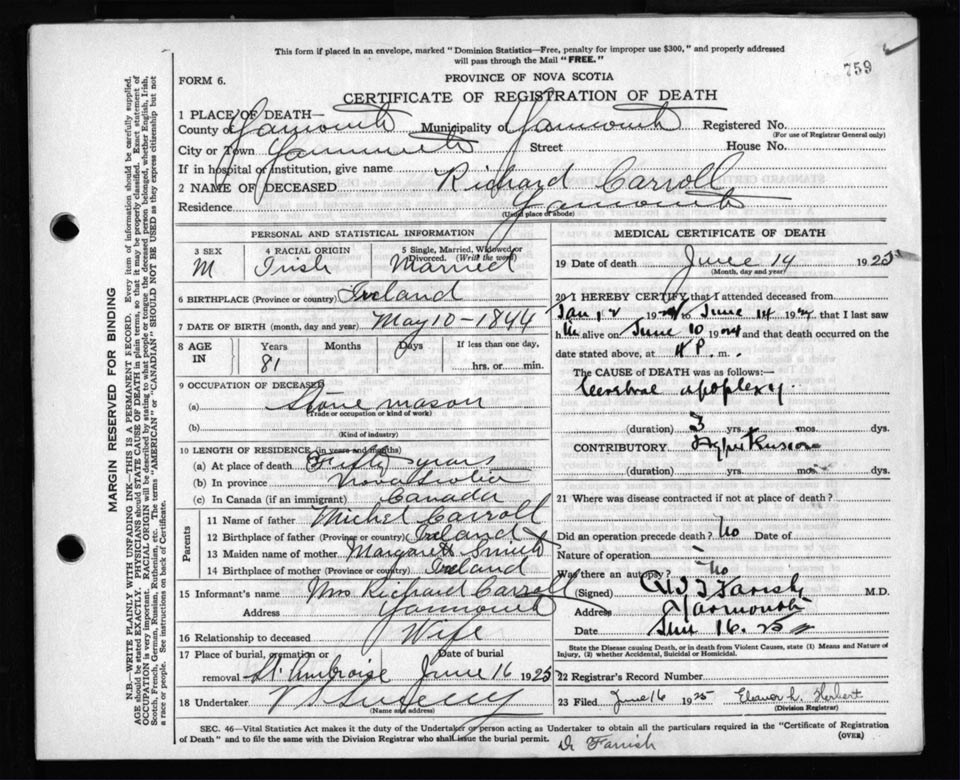 This form if placed in an envelope, marked "Dominion Statistics—Free, penalty for improper use $300," and properly addressed
will pass through the Mail "FREE."
759
FORM 6.
PROVINCE OF NOVA SCOTIA
CERTIFICATE OF REGISTRATION OF DEATH
1 PLACE OF DEATH—
County of Yarmouth Municipality of Yarmouth Registered No.
(For use of Registrar General only)
City or Town Yarmouth Street House No.
If in hospital or institution, give name
2 NAME OF DECEASED Richard Carroll
Residence Yarmouth
(Usual place of abode)
PERSONAL AND STATISTICAL INFORMATION
3 SEX M
4 RACIAL ORIGIN Irish
5 Single, Married, Widowed or Divorced. (Write the word) Married
6 BIRTHPLACE (Province or country) Ireland
7 DATE OF BIRTH (month, day and year) May 10 - 1844
8 AGE IN Years Months Days If less than one day,
81 hrs. or min.
9 OCCUPATION OF DECEASED
(a) Stone mason
(Trade or occupation or kind of work)
(b)
(Kind of industry)
10 LENGTH OF RESIDENCE (in years and months)
(a) At place of death Fifty years
(b) In province Nova Scotia
(c) In Canada (if an immigrant) Canada
Parents
11 Name of father Michel Carroll
12 Birthplace of father (Province or country) Ireland
13 Maiden name of mother Margaret Smith
14 Birthplace of mother (Province or country) Ireland
15 Informant's name Mrs Richard Carroll
Address Yarmouth
16 Relationship to deceased Wife
17 Place of burial, cremation or removal St. Ambroise Date of burial June 16 1925
18 Undertaker
(Name and address)
MEDICAL CERTIFICATE OF DEATH
19 Date of death June 14 1925
(Month, day and year)
20 I HEREBY CERTIFY that I attended deceased from
Jan, 2 19 to June 14 19 , that I last saw
h im alive on June 10 19 and that death occurred on
date stated above, at 4 P. m.
The CAUSE of DEATH was as follows:—
Cerebral apoplexy
(duration) 3 yrs. mos. dys.
CONTRIBUTORY Hypertension
(duration) yrs. mos. dys.
21 Where was disease contracted if not at place of death?
Did an operation precede death? No Date of
Nature of operation
Was there an autopsy? No
(Signed) Farish M.D.
Address Yarmouth
Date Jun 16. 25
State the Disease causing Death, or in death from Violent Causes, state (1) Means and Nature of
Injury, (2) whether Accidental, Suicidal or Homicidal.
22 Registrar's Record Number
23 Filed June 16 1925 Eleanor L. Herbert
(Division Registrar)
SEC. 46—Vital Statistics Act makes it the duty of the Undertaker or person acting as Undertaker to obtain all the particulars required in the "Certificate of Registration
of Death" and to file the same with the Division Registrar who shall issue the burial permit. (OVER)
Dr Farish
MARGIN RESERVED FOR BINDING
N.B.—WRITE PLAINLY WITH UNFADING INK—THIS IS A PERMANENT RECORD. Every item of information should be carefully supplied.
AGE should be stated EXACTLY. PHYSICIANS should STATE CAUSE OF DEATH in plain terms, so that it may be properly classified. Exact statement of
OCCUPATION is very important. RACIAL ORIGIN will be described by stating to what people or tongue the deceased person belonged, whether English, Irish,
Scotch, French, German, Russian, Ruthenian, etc. The terms "AMERICAN" or "CANADIAN" SHOULD NOT BE USED as they express citizenship but not
a race or people. See instructions on back of Certificate.